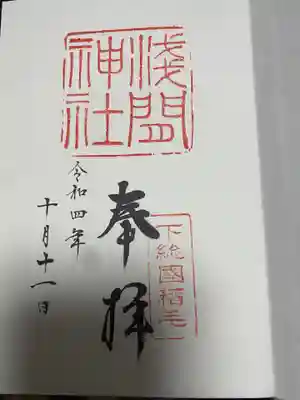 浅間
神社
下総國稲毛
奉拝
令和四年
十月十一日